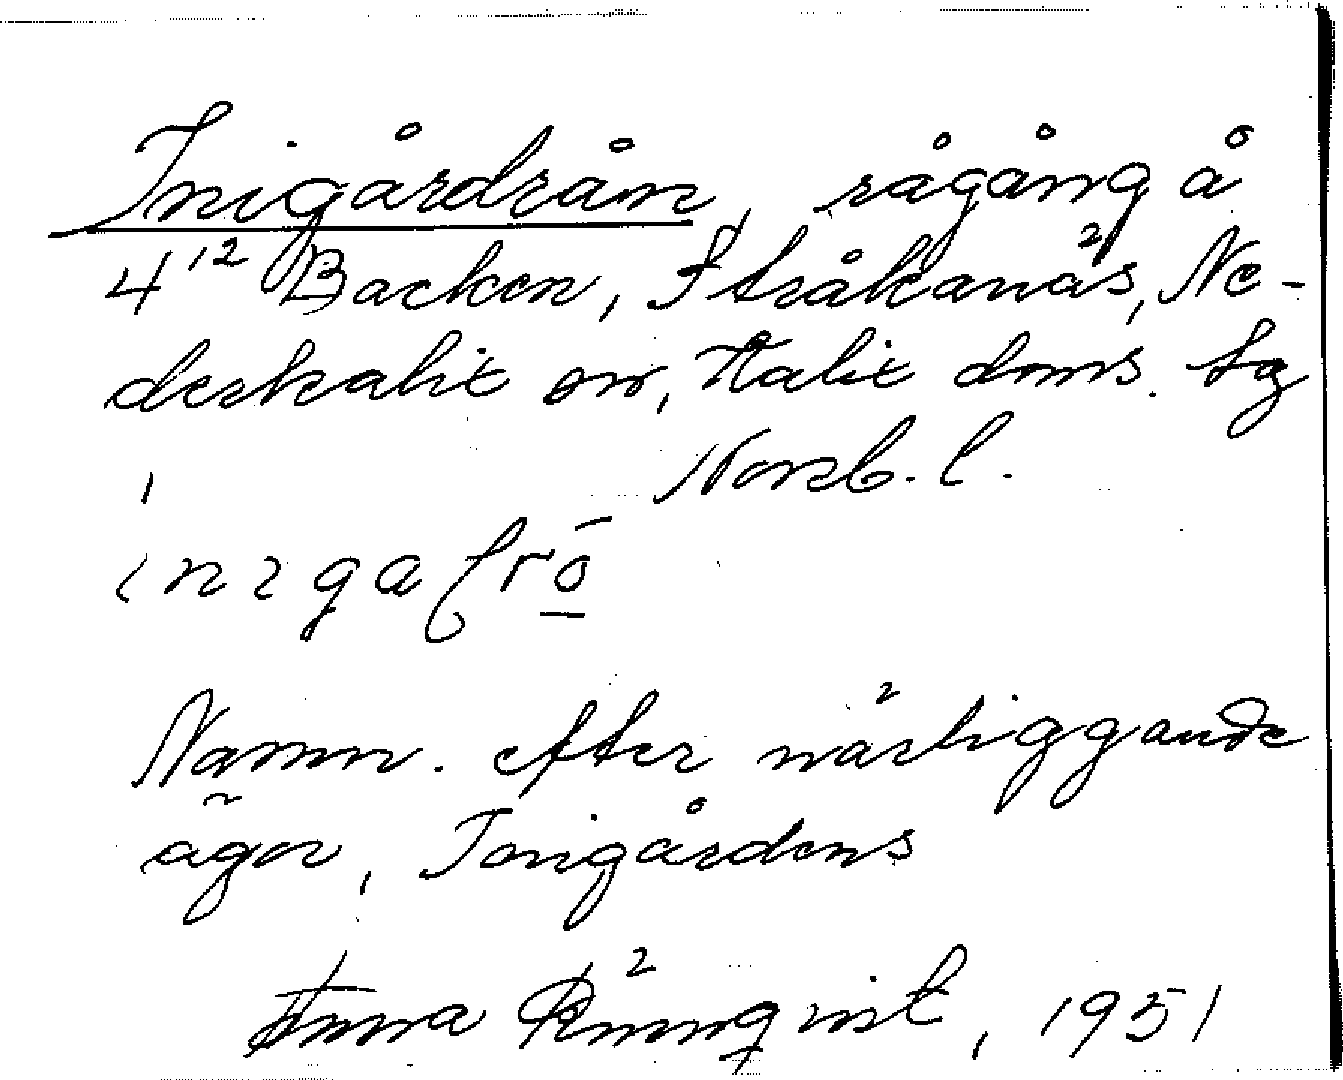 Inigårdrån, rågång å
4¹² Backen, Stråkanäs, Ne-
derkalix sn, Kalix doms. tg
Norrb. l.
Namn. efter närliggande
ägor, Inigårdens
Anna Rönnqvist, 1951